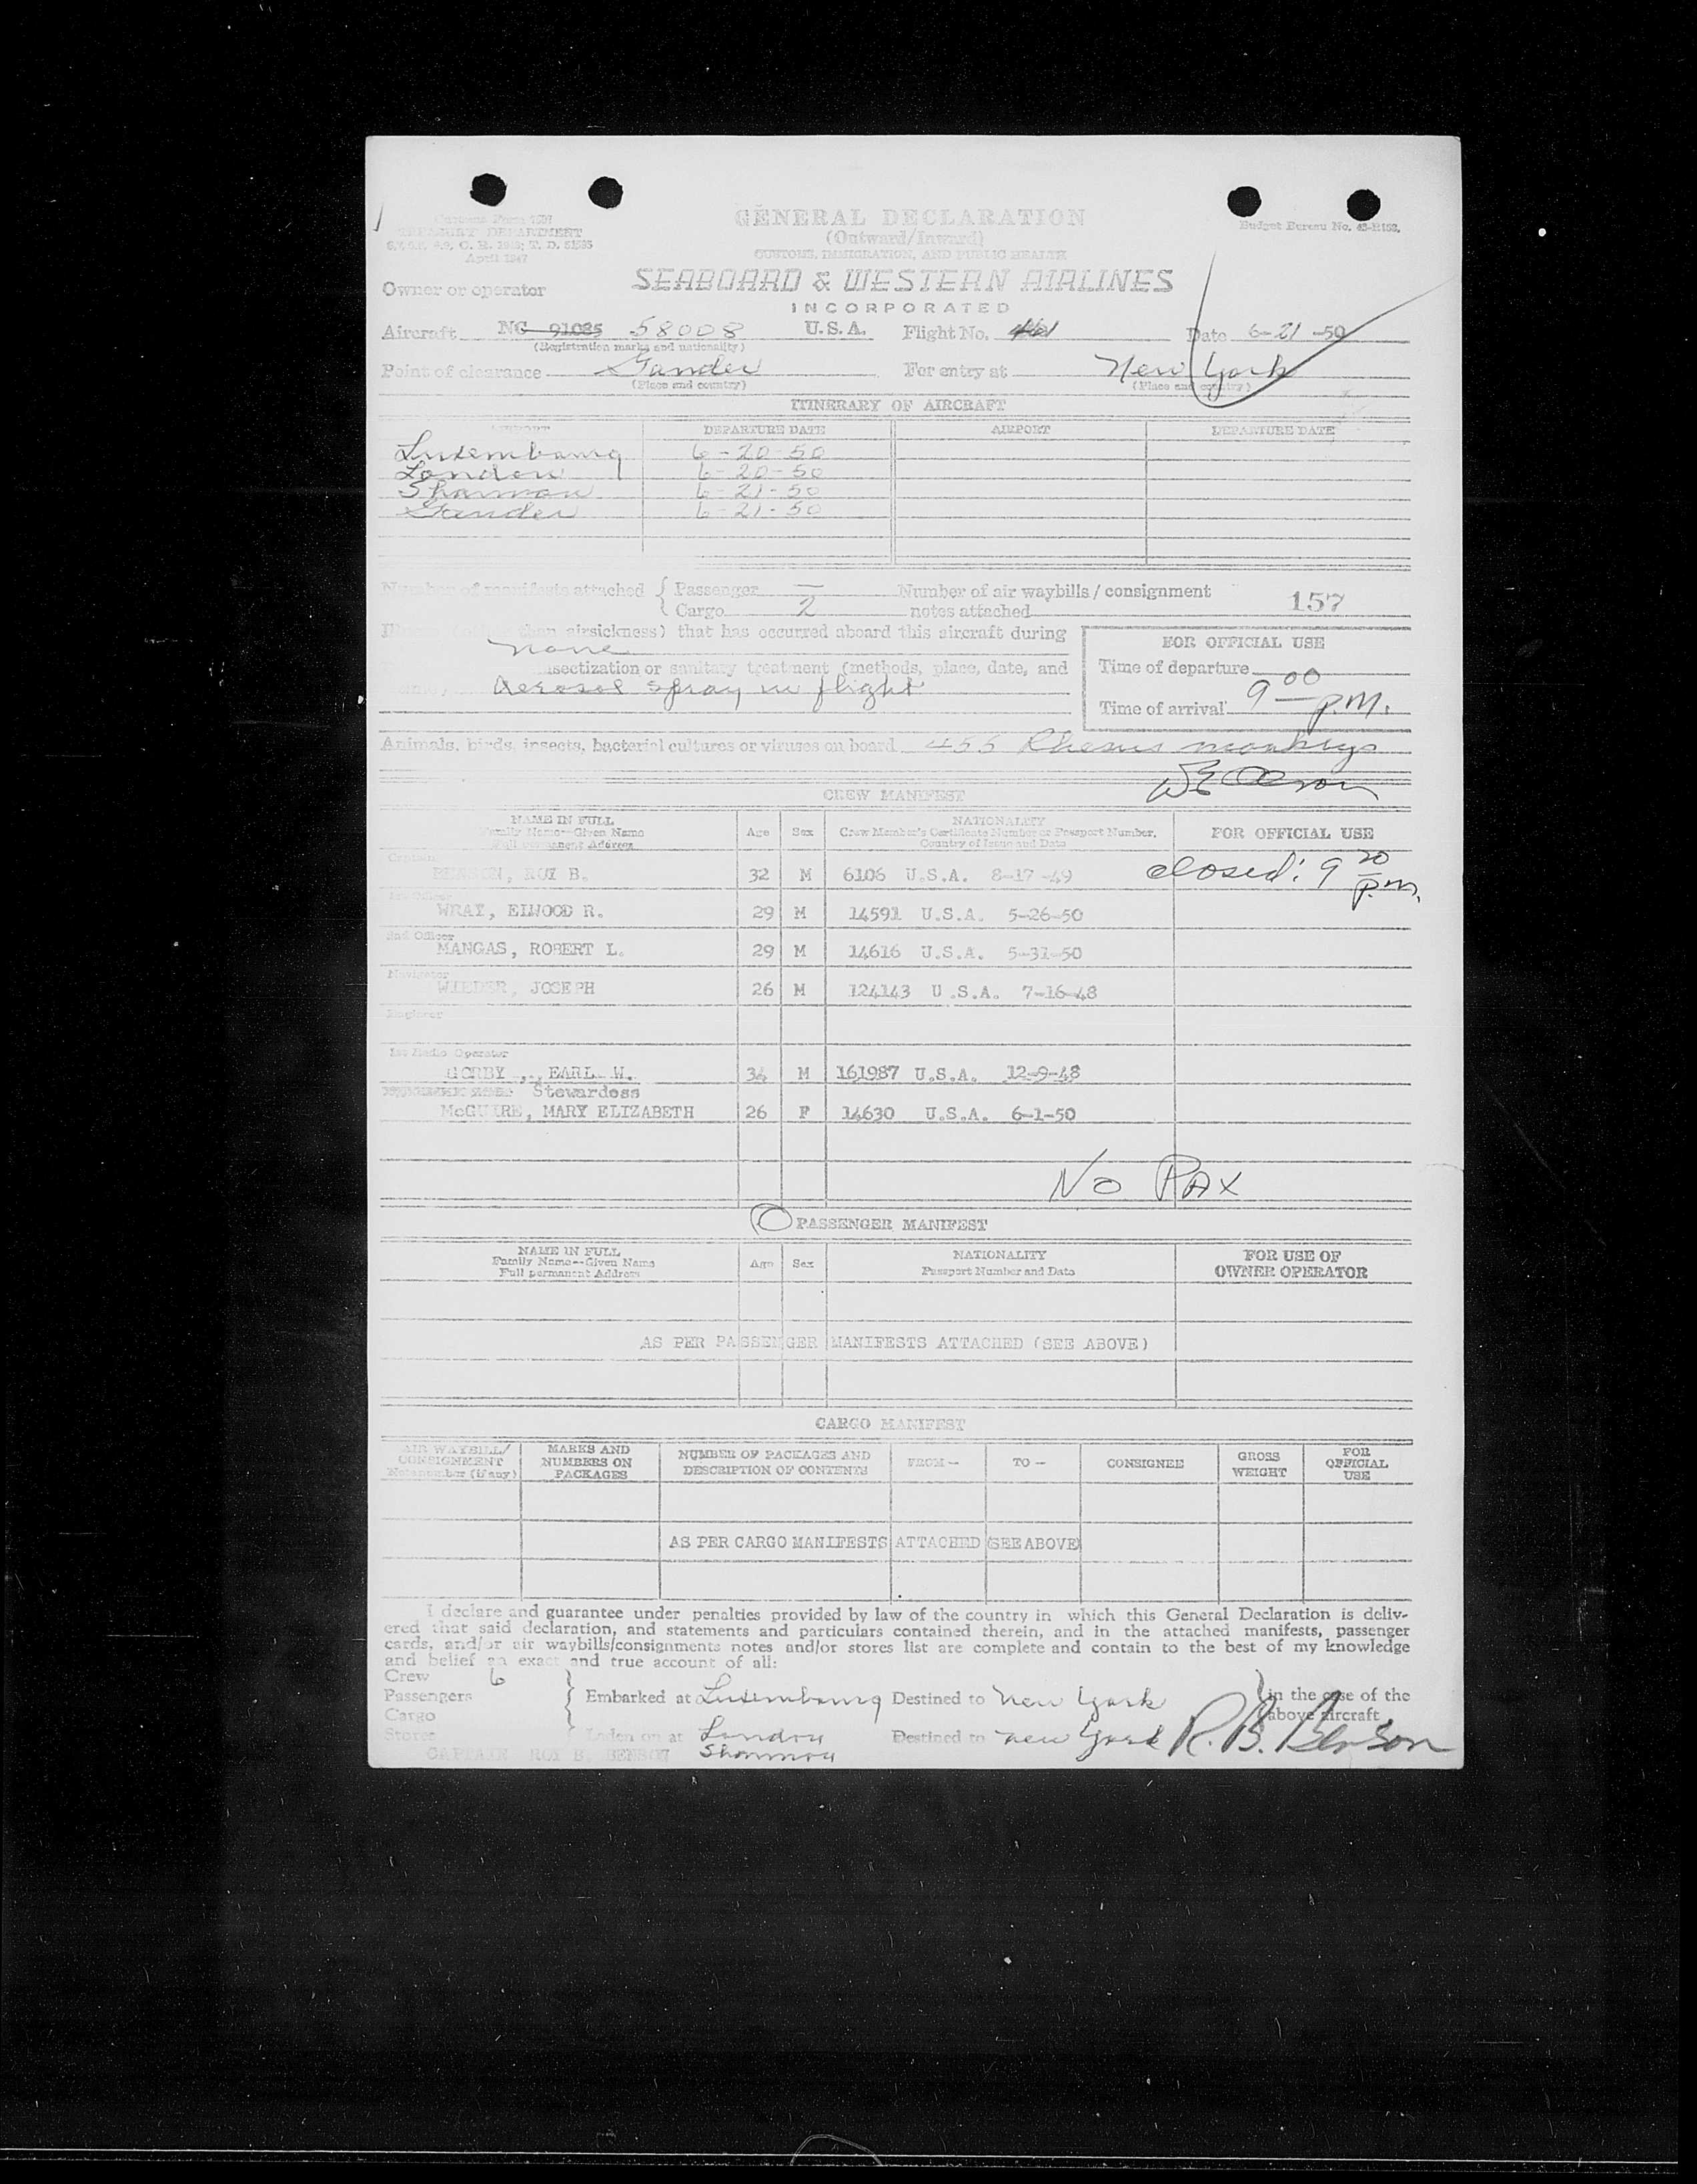 Customs Form 7507
TREASURY DEPARTMENT
April 1947
Budget Bureau No.
GENERAL DECLARATION
(Outward/Inward)
CUSTOMS, IMMIGRATION, AND PUBLIC HEALTH
Owner or operator
SEABOARD & WESTERN AIRLINES
INCORPORATED
Aircraft NC 91085 58008 U.S.A. Flight No. Date 6-21-50
(Registration marks and nationality)
Point of clearance Gander For entry at New York
(Place and country) (Place and country)
ITINERARY OF AIRCRAFT
AIRPORT DEPARTURE DATE AIRPORT DEPARTURE DATE
Luxembourg 6-20-50
London 6-20-50
Shannon 6-21-50
Gander 6-21-50
Number of manifests attached { Passenger — Number of air waybills / consignment
{ Cargo 2 notes attached 157
than airsickness) that has occurred aboard this aircraft during
none
FOR OFFICIAL USE
insectization or sanitary treatment (methods, place, date, and
Time of departure
Aerosol spray in flight
Time of arrival 9 00 P.M.
Animals, birds, insects, bacterial cultures or viruses on board 455 Rhesus monkeys
CREW MANIFEST
NAME IN FULL
Family Name--Given Name
Full permanent Address
Age Sex
NATIONALITY
Crew Member's Certificate Number or Passport Number,
Country of Issue and Date
FOR OFFICIAL USE
Captain
BENSON, ROY B. 32 M 6106 U.S.A. 8-17-49 closed: 9 20 P.m.
1st Officer
WRAY, ELWOOD R. 29 M 14591 U.S.A. 5-26-50
2nd Officer
MANGAS, ROBERT L. 29 M 14616 U.S.A. 5-31-50
Navigator
WIEDER, JOSEPH 26 M 124143 U.S.A. 7-16-48
Engineer
1st Radio Operator
EARL W. 34 M 161987 U.S.A. 12-9-48
Stewardess
McGUIRE, MARY ELIZABETH 26 F 14630 U.S.A. 6-1-50
No PAX
O PASSENGER MANIFEST
NAME IN FULL
Family Name--Given Name
Full permanent Address
Age Sex
NATIONALITY
Passport Number and Date
FOR USE OF
OWNER OPERATOR
AS PER PASSENGER MANIFESTS ATTACHED (SEE ABOVE)
CARGO MANIFEST
AIR WAYBILL/
CONSIGNMENT
Note number (if any)
MARKS AND
NUMBERS ON
PACKAGES
NUMBER OF PACKAGES AND
DESCRIPTION OF CONTENTS
FROM —
TO —
CONSIGNEE
GROSS
WEIGHT
FOR
OFFICIAL
USE
AS PER CARGO MANIFESTS ATTACHED (SEE ABOVE)
I declare and guarantee under penalties provided by law of the country in which this General Declaration is deliv-
ered that said declaration, and statements and particulars contained therein, and in the attached manifests, passenger
cards, and/or air waybills/consignments notes and/or stores list are complete and contain to the best of my knowledge
and belief an exact and true account of all:
Crew 6
Passengers Embarked at Luxembourg Destined to New York in the case of the
Cargo above aircraft
Stores Laden on at London Destined to New York R. B. Benson
CAPTAIN ROY B. BENSON Shannon